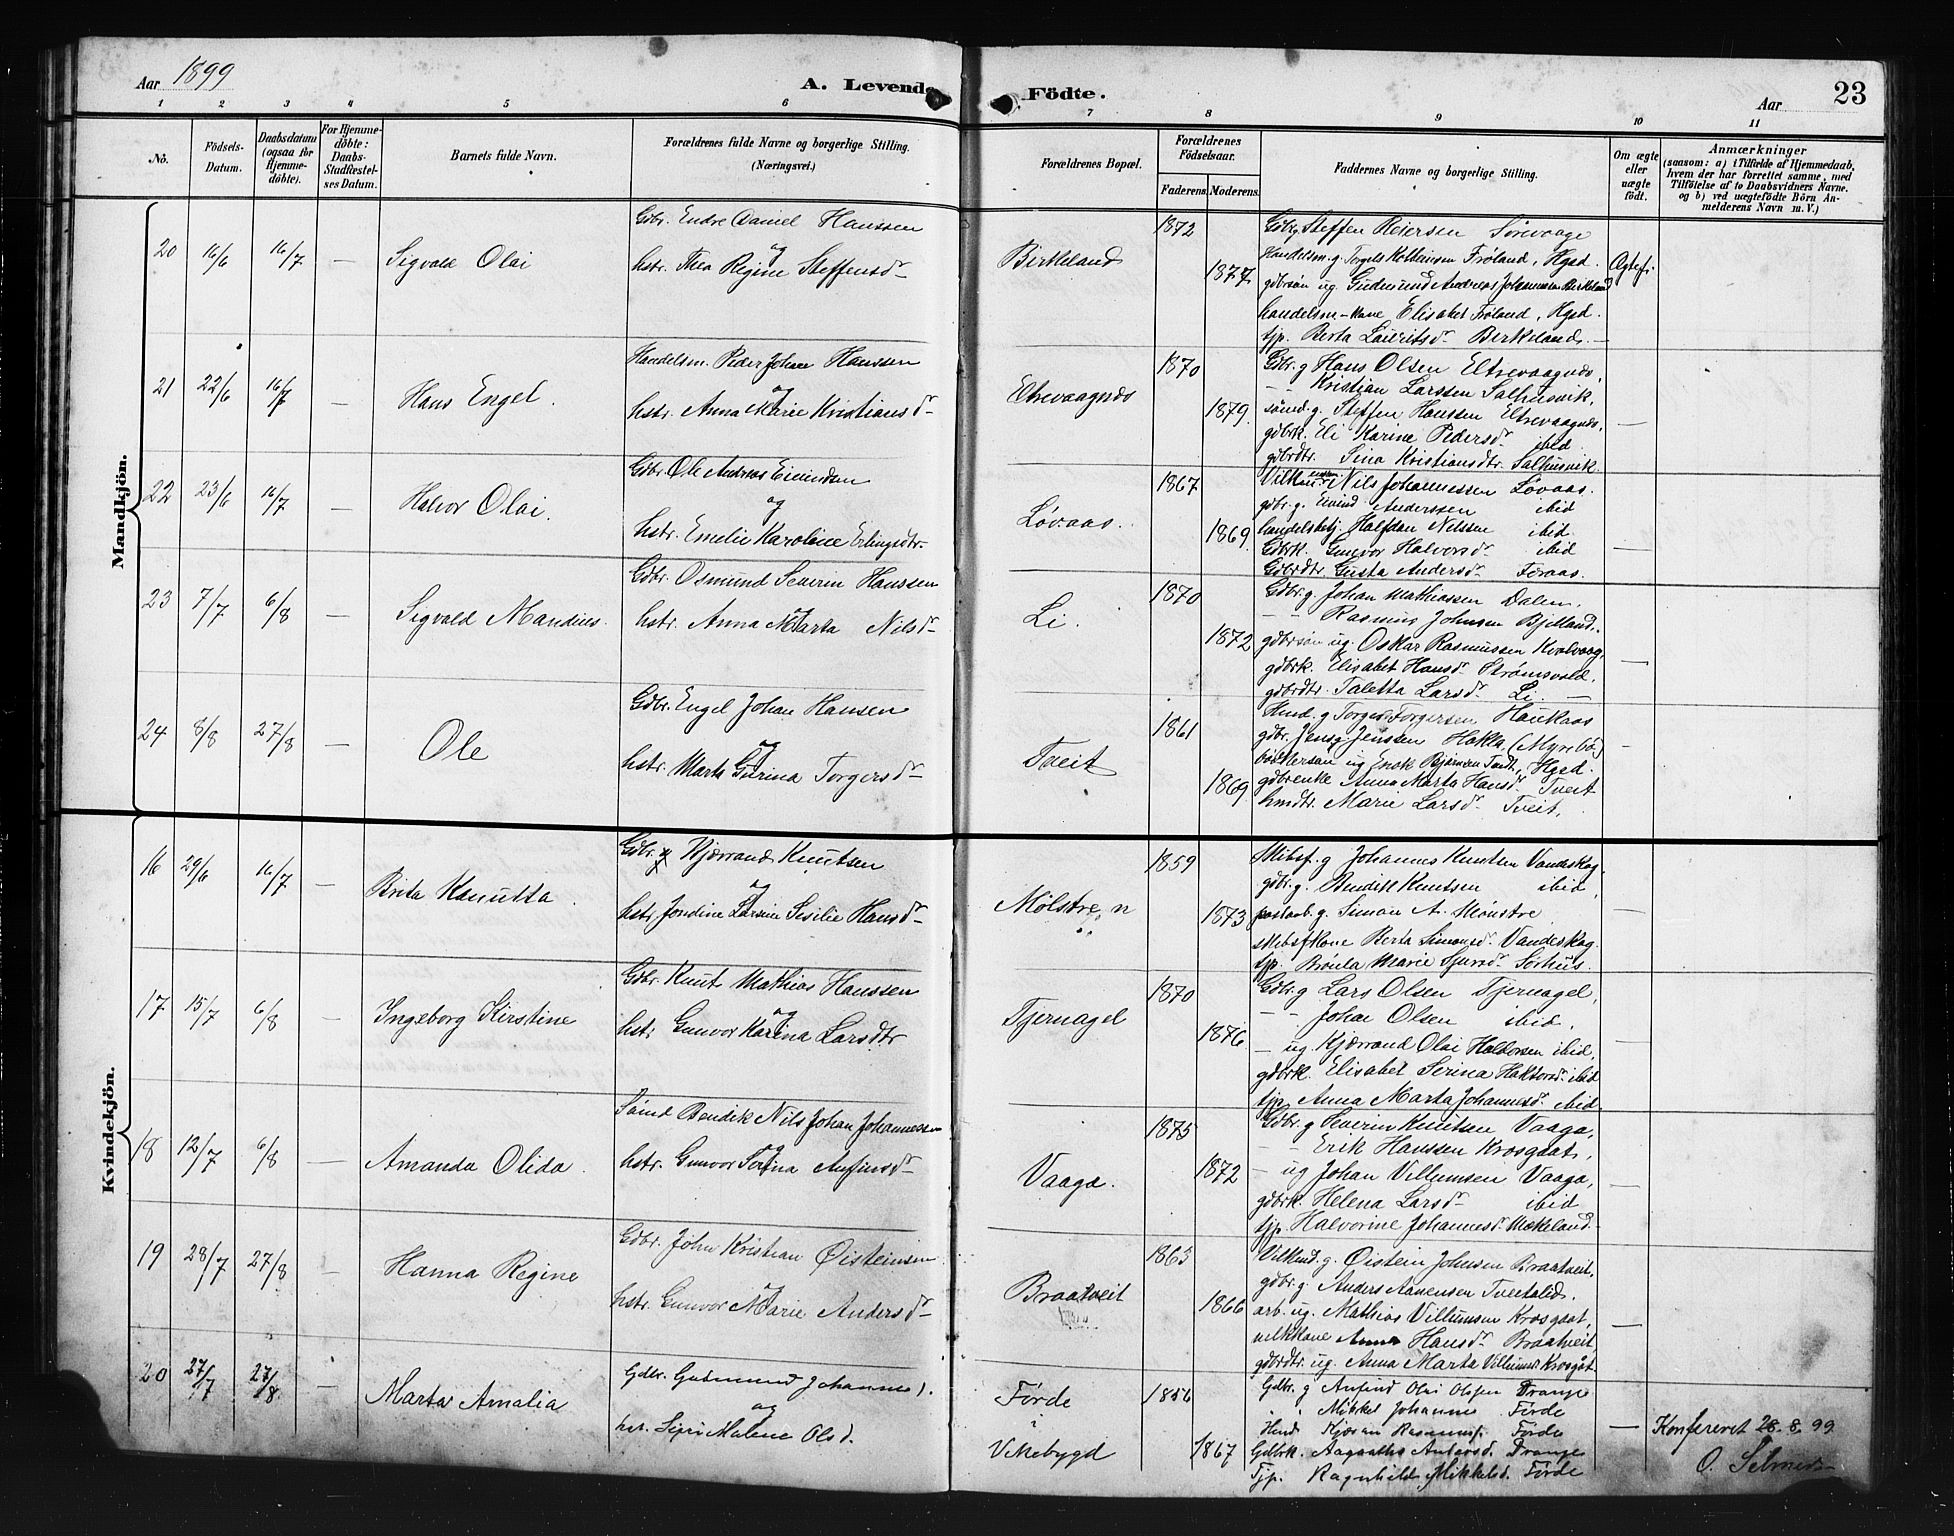 Aar 1899
A. Levende Födte.
Aar
23
1 2 3 4 5 6 7 8 9 10 11
No.
Födsels-Datum.
Daabsdatum (ogsaa for Hjemme-döbte).
For Hjemme-döbte: Daabs-Stadfæstel-ses Datum.
Barnets fulde Navn.
Forældrenes fulde Navne og borgerlige Stilling. (Næringsvei.)
Forældrenes Bopæl.
Forældrenes Födselsaar.
Faderens. Moderens.
Faddernes Navne og borgerlige Stilling.
Om ægte eller uægte födt.
Anmærkninger
(saasom: a) i Tilfælde af Hjemmedaab,
hvem der har forrettet samme, med
Tilföielse af to Daabsvidners Navne.
og b) ved uægtefödte Börn An-
melderens Navn m. V.)
Mandkjön.
20 16/6 16/7 — Sigvald Olai
Gdbr. Endre Daniel Hanssen
og
hstr. Thea Regine Steffensdr
Birkeland
1872
1877
Gdbr g Steffen Reiersen Sørevaage
Handelsm. g. Torgels Kolbeinsen Frøland, Hgsd.
gdbrsøn ug. Gudmund Andreas Johannesen Birkeland
handelsm-kone Elisabet Frøland, Hgsd.
tjp. Berta Lauritsdr Birkeland.
Ægtef.
21 22/6 16/7 — Hans Engel.
Handelsm. Peder Johan Hanssen
og
hstr. Anna Marie Kristiansdr
Eltrevaagnæs
1870
1879
Gdbr. g Hans Olsen Eltrevaagnæs.
— Kristian Larssen Salhusvik.
sømd. g. Steffen Hanssen Eltrevaagnæs.
gdbrk. Eli Karine Pedersdr ibid
gdbrdtr. Sina Kristiansdtr. Salhusvik.
—
22 23/6 16/7 Halvor Olai.
Gdbr. Ole Andreas Eivindsen
og
hstr. Emelie Karoline Erlingsdtr.
Løvaas.
1867
1869
Nils Johannessen Løvaas.
gdbr. g. Eivind Anderssen ibid
handelsbetj. Halfdan Nelssen ibid.
Gdbrk. Gunvor Halvorsdr ibid
Gdbrdtr. Gusta Andersdr
—
23 7/7 6/8 — Sigvald Mandius.
Gdbr. Osmund Severin Hanssen
og
hstr. Anna Marta Nilsdr
Li.
1870
1872
Gdbr. g. Johan Mathiassen Dalen.
— Rasmus Johnsen Bjelland.
gdbrsøn ug. Oskar Rasmussen Kvalvaag.
gdbrk. Elisabet Hansdr Strømsvold.
gdbrdtr. Taletta Larsdr Li.
—
24 8/8 27/8 — Ole
Gdbr. Engel Johan Hansen
og
hstr. Marta Gurina Torgersdr
Tveit
1861
1869
Hmd. g Torger Torgersen Haukaas
gdbr. Jens g Jenssen Hokla (Myrebø)
gdbrenke Anna Marta Hansdr Tveit
hmdtr. Marie Larsdr Tveit.
—
Kvindekjön.
16 29/6 16/7 — Brita Kanutta.
Gdbr. g Kjærrand Knutsen
og
hstr. Jondine Larsine Sesilie Hansdr
Mølstre, n
1859
1873
Skibsf. g Johannes Knutsen Vandeskog.
gdbr. g. Bendik Knutsen ibid,
postaab. g. Simon A. Mønstre
skibsfkone Berta Simonsdr Vandeskog.
tjp. Marie Sjursdr Sørhus.
—
17 15/7 6/8 — Ingeborg Kirstine
Gdbr. Knut Mathias Hanssen
og
hstr. Gunvor Karina Larsdtr
Tjernagel
1870
1876
Gdbr. g Lars Olsen Tjernagel,
— Johan Olsen ibid,
— ug. Kjærrand Olai Haldorsen ibid,
gdbrk. Elisabet Serina ibid
tjp. Anna Marta Johannesdr. ibid.
—
18 12/7 6/8 — Amanda Olida.
Sømd Bendik Nils Johan Johannessen
og
hstr. Gunvor Serina Anfinsdr
Vaage.
1875
1872
Gdbr. g Severin Knutsen Vaage,
— Erik Hanssen Krosgaat,
— ug Johan Villumsen Vaage,
gdbrk. Helena Larsdr ibid
tjp. Halvorine Johannesdr. Mækeland.
—
19 28/7 27/8 — Hanna Regine
Gdbr. John Kristian Øisteinsen
og
hstr. Gunvor Marie Andersdr
Braatveit
1863
1866
Vilkmd. g. Øistein Johnsen Braatveit,
gdbr. g. Anders Aanensen Tveitalid.
arb. ug. Mathias Villumsen Krosgaat,
vilkkone Anna Hansdr Braatveit
gdbrdtr. ug. Anna Marta Villumsdr Krosgåt
—
20 27/7 27/8 — Marta Amalia
Gdbr. Gudmund Johannes).
og
hst. Siri Malene Olsd.
Førde
i
Vikebygd
1856
1867
Gdbr. g Anfind Olai Olsen Drange
" " Mikkel Johannes Førde
Hmd Rasmuss. Førde
Gdbrk. Aagaatha Andersd. Drange
Tjp. Ragnhild Mikkelsd. Førde
— Konfereret 28.8.99
O. Selmer